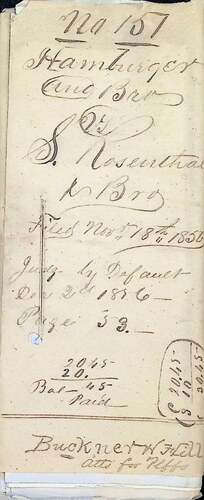 No 151
Hamburger
and Bro
vs
S. Rosenthal
& Bro
Filed Novr 18th 1856
Judg by Default
Dec 2d 1856
Page 33.
20.45
20.
Bal 45
Paid
C 20.45
S 10
30.45
Buckner & Hill
atts for Plffs